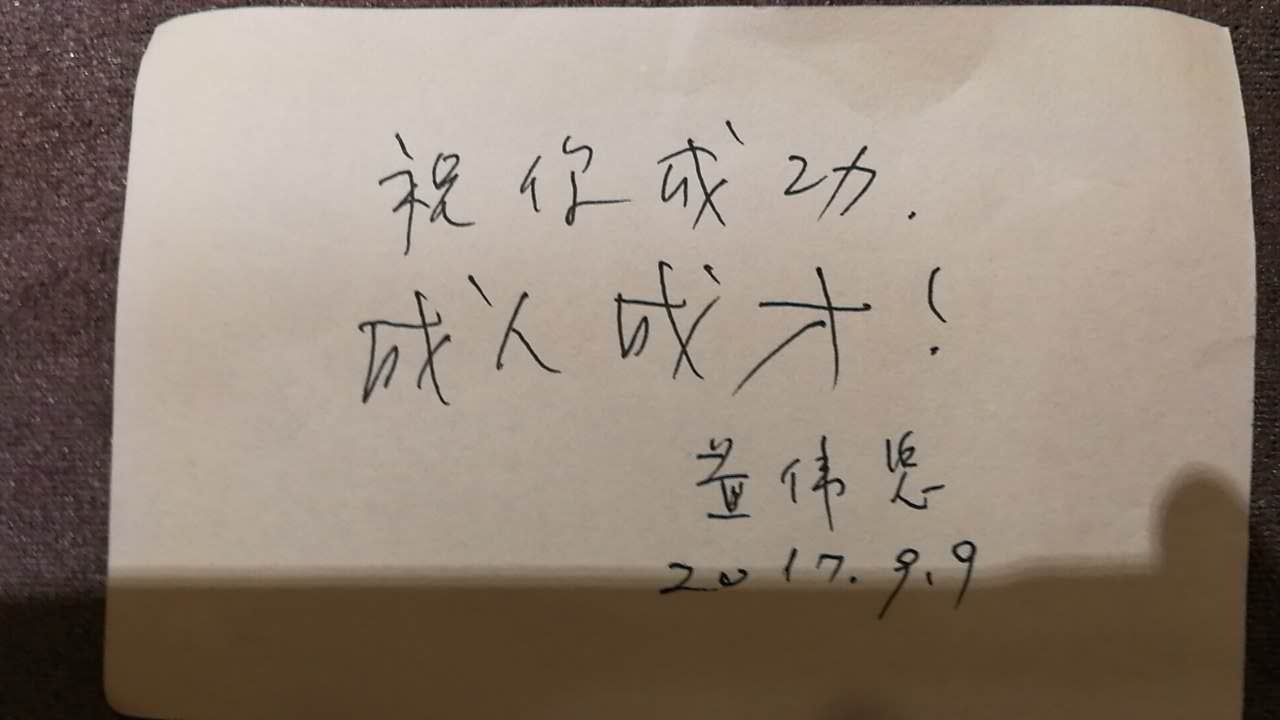 祝你成功.
成人成才!
盖伟恩
2017.9.9